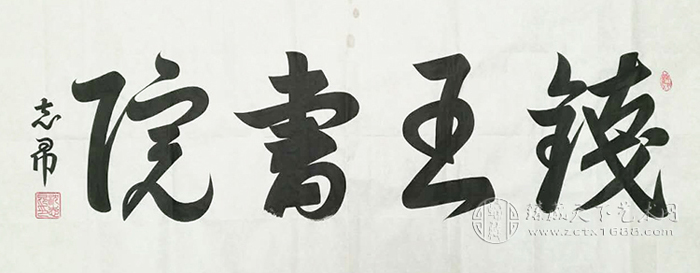 錢王書院
志帬
臻藏天下艺术网
www.zctx1688.com